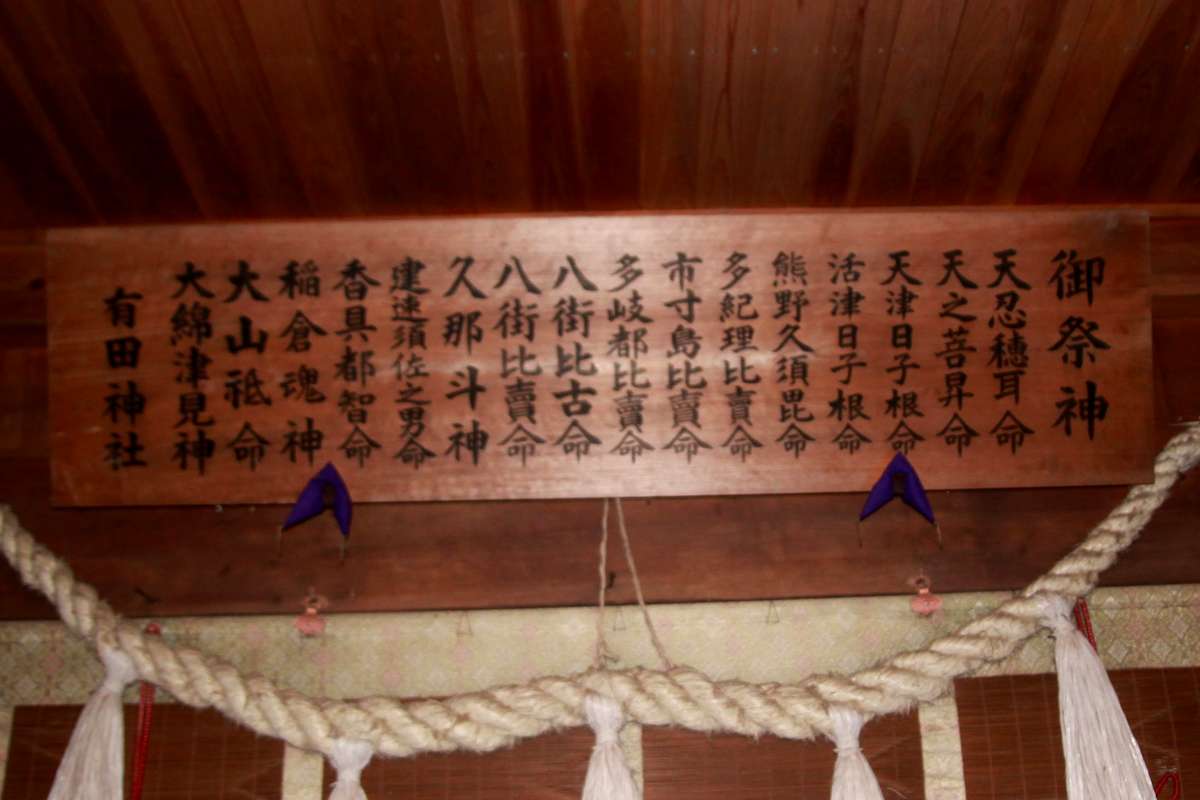 御祭神
天忍穗耳命
天之菩昇命
天津日子根命
活津日子根命
熊野久須毘命
多紀理比賣命
市寸島比賣命
多岐都比賣命
八街比古命
八街比賣命
久那斗神
建速須佐之男命
香具都智命
稲倉魂神
大山祗命
大綿津見神
有田神社